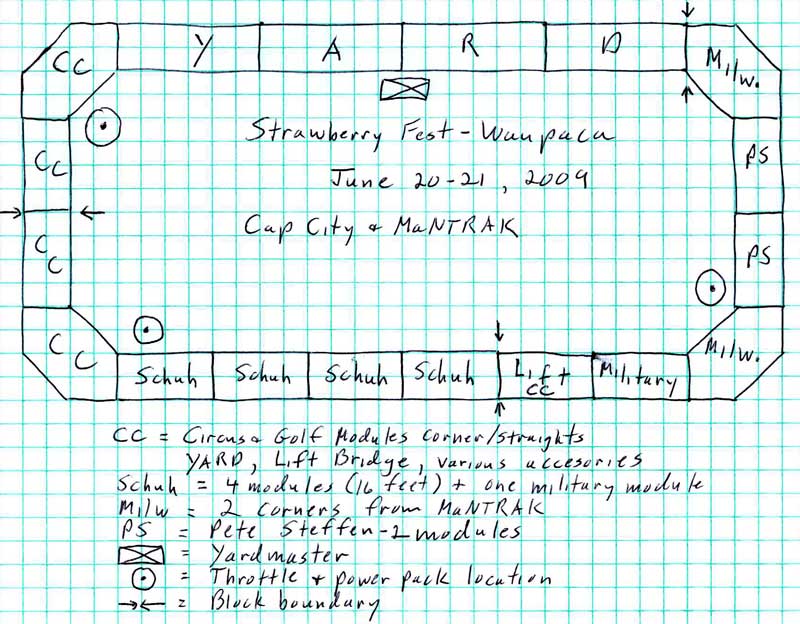 CC Y A R D Milw.
Strawberry Fest - Waupaca
June 20-21, 2009
Cap City + MaNTRAK
CC
PS
CC
PS
CC
Milw.
Schuh Schuh Schuh Schuh Lift CC Military
CC = Circus & Golf Modules corner/straights
YARD, Lift Bridge, various accesories
Schuh = 4 modules (16 feet) + one military module
Milw = 2 corners from MaNTRAK
PS = Pete Steffen - 2 modules
= Yardmaster
= Throttle + power pack location
= Block boundary